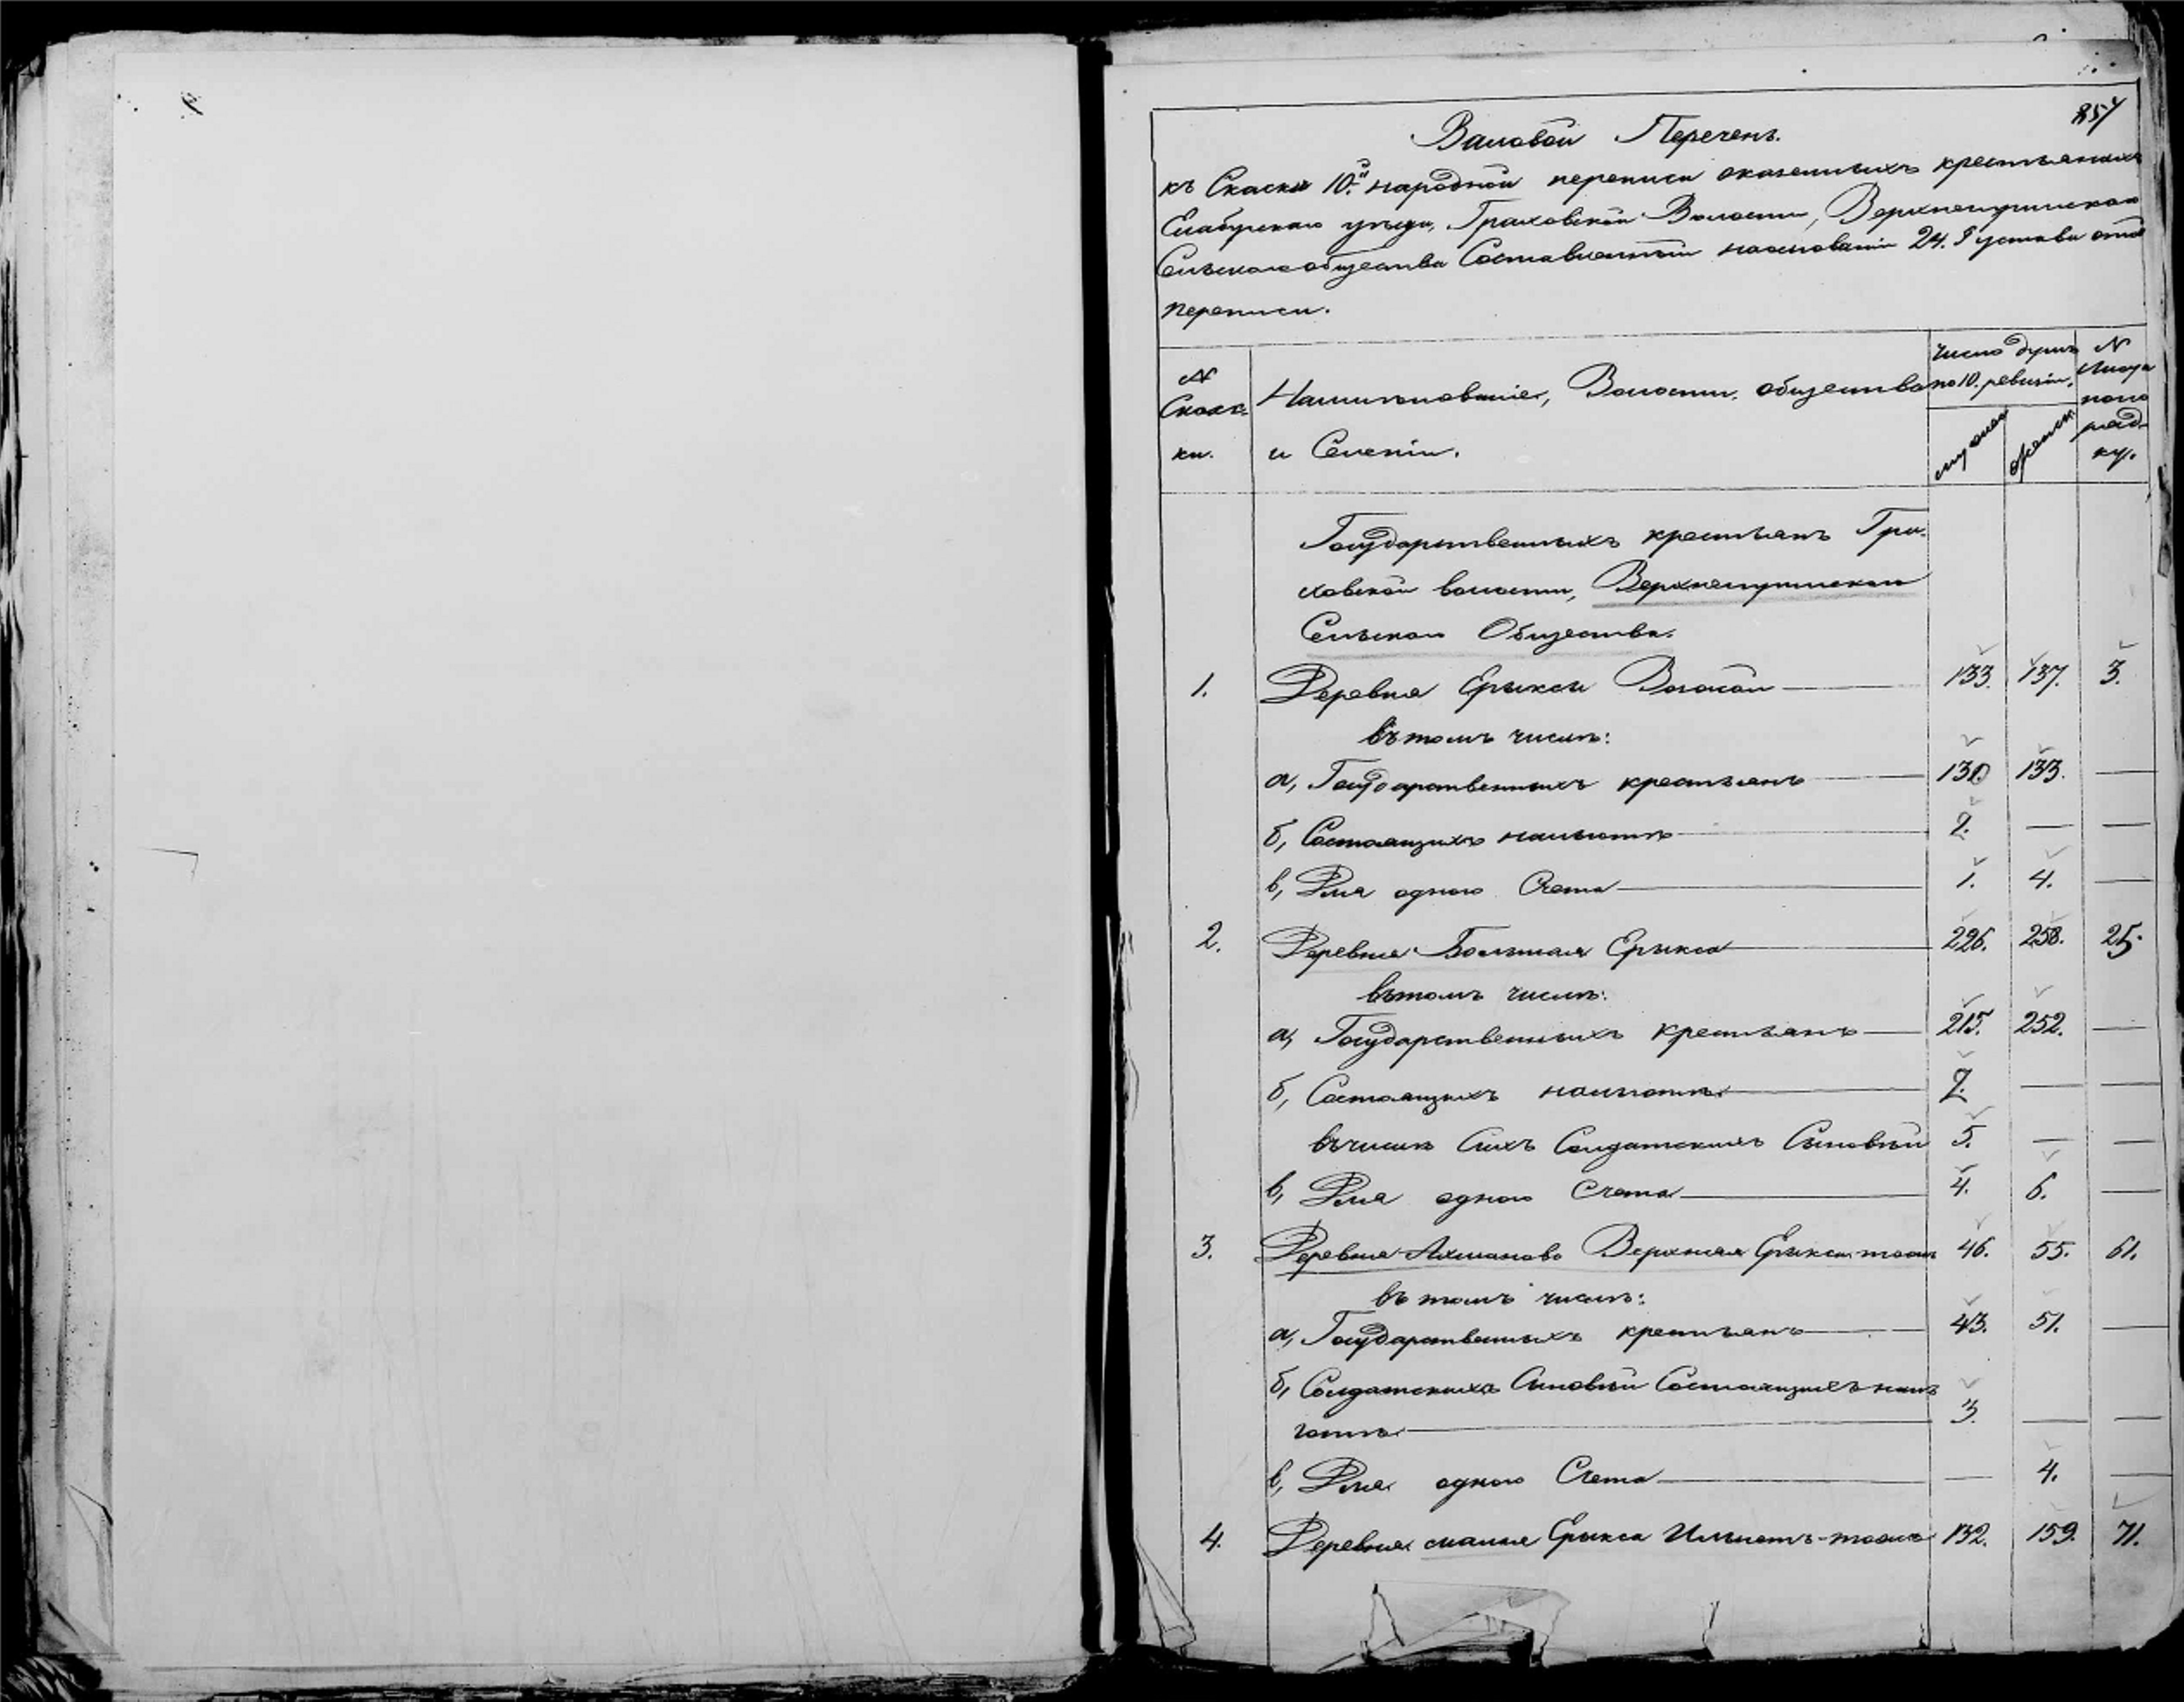 857
Валовой Перечень.
къ Скаске 10.й народной переписи о казенныхъ крестьянахъ
Елабужскаго уезда, Граховской Волости,
Сельскаго общества Составленный на основаніи 24. § устава о
переписи.
N Сказ-ки.
Наименованіе, Волости, общества
и Селенія.
Число душъ по 10. ревизіи.
мужска женск.
N Листа по поряд-ку.
Государственныхъ крестьянъ Гра-
ховской волости,
Сельскаго Общества.
1. Деревня Ерыкси 133. 137. 3.
въ томъ числѣ:
а, Государственныхъ крестьянъ 130 133. —
б, Состоящихъ на льготѣ 2. — —
в, Для одного Счета 1. 4. —
2. Деревня Большая Ерыкса 226. 258. 25.
въ томъ числѣ:
а, Государственныхъ крестьянъ 215. 252. —
б, Состоящихъ на льготѣ 7. — —
въ числѣ Сихъ Солдатскихъ Сыновей 5. — —
в, Для одного Счета 4. 6. —
3. Деревня Верхняя Ерыкса тожъ 46. 55. 61.
въ томъ числѣ:
а, Государственныхъ крестьянъ 43. 51. —
б, Солдатскихъ Сыновей Состоящихъ на ль
готѣ 3. — —
в, Для одного Счета — 4. —
4. Деревня малая Ерыкса тожъ 132. 159. 71.